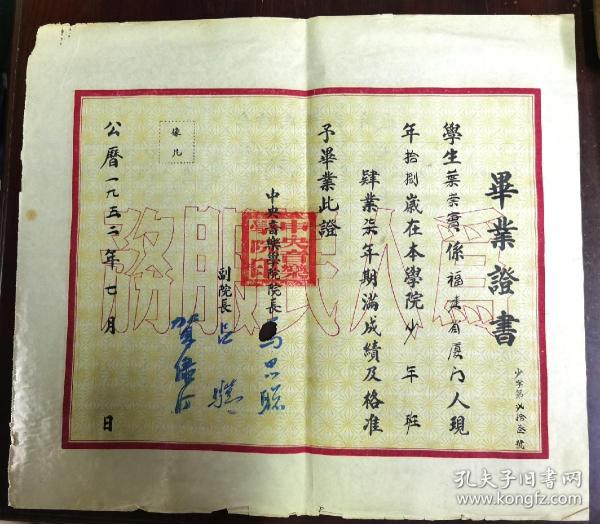 畢業證書
少字第貳拾叁號
學生葉榮實係福建省厦门人現
年拾捌歲在本學院少年班
肄業柒年期滿成績及格准
予畢業此證
中央音樂學院院長 馬思聰
副院長 呂驥
賀綠汀
像片
公曆一九五二年七月 日
為人民服務
中央音樂學院印
孔夫子旧书网
www.kongfz.com